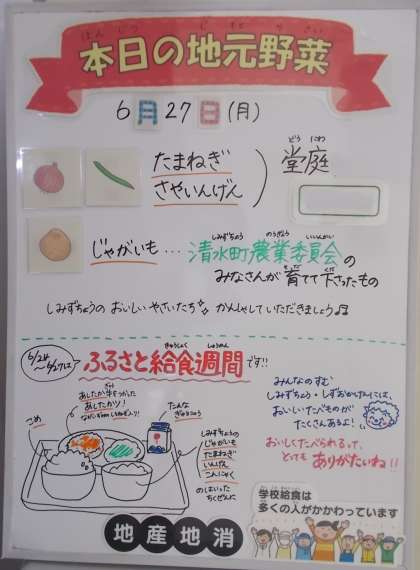 ほん じつ じ もと や さい
本日の地元野菜
6月27日(月)
たまねぎ
さやいんげん
どう にわ
堂庭
じゃがいも…
しみずちょう のうぎょう いいんかい
清水町農業委員会の
みなさんが育てて下さったもの
しみずちょうの おいしい やさいたち かんしゃしていただきましょう♫
6/24
〜6/27は
きゅうしょく しゅうかん
ふるさと給食週間です!!
こめ
あしたか牛をつかった
あしたかツ!
たんな
ぎゅうにゅう
しみずちょうの
じゃがいも
たまねぎ
いんげん
こんにゃく
のはいった
ちくぜんに
みんなのすむ
しみずちょう・しずおかけんには、
おいしいたべものが
たくさんあるよ!
おいしくたべられるって、
とっても ありがたいね!!
地産地消
学校給食は
多くの人がかかわっています